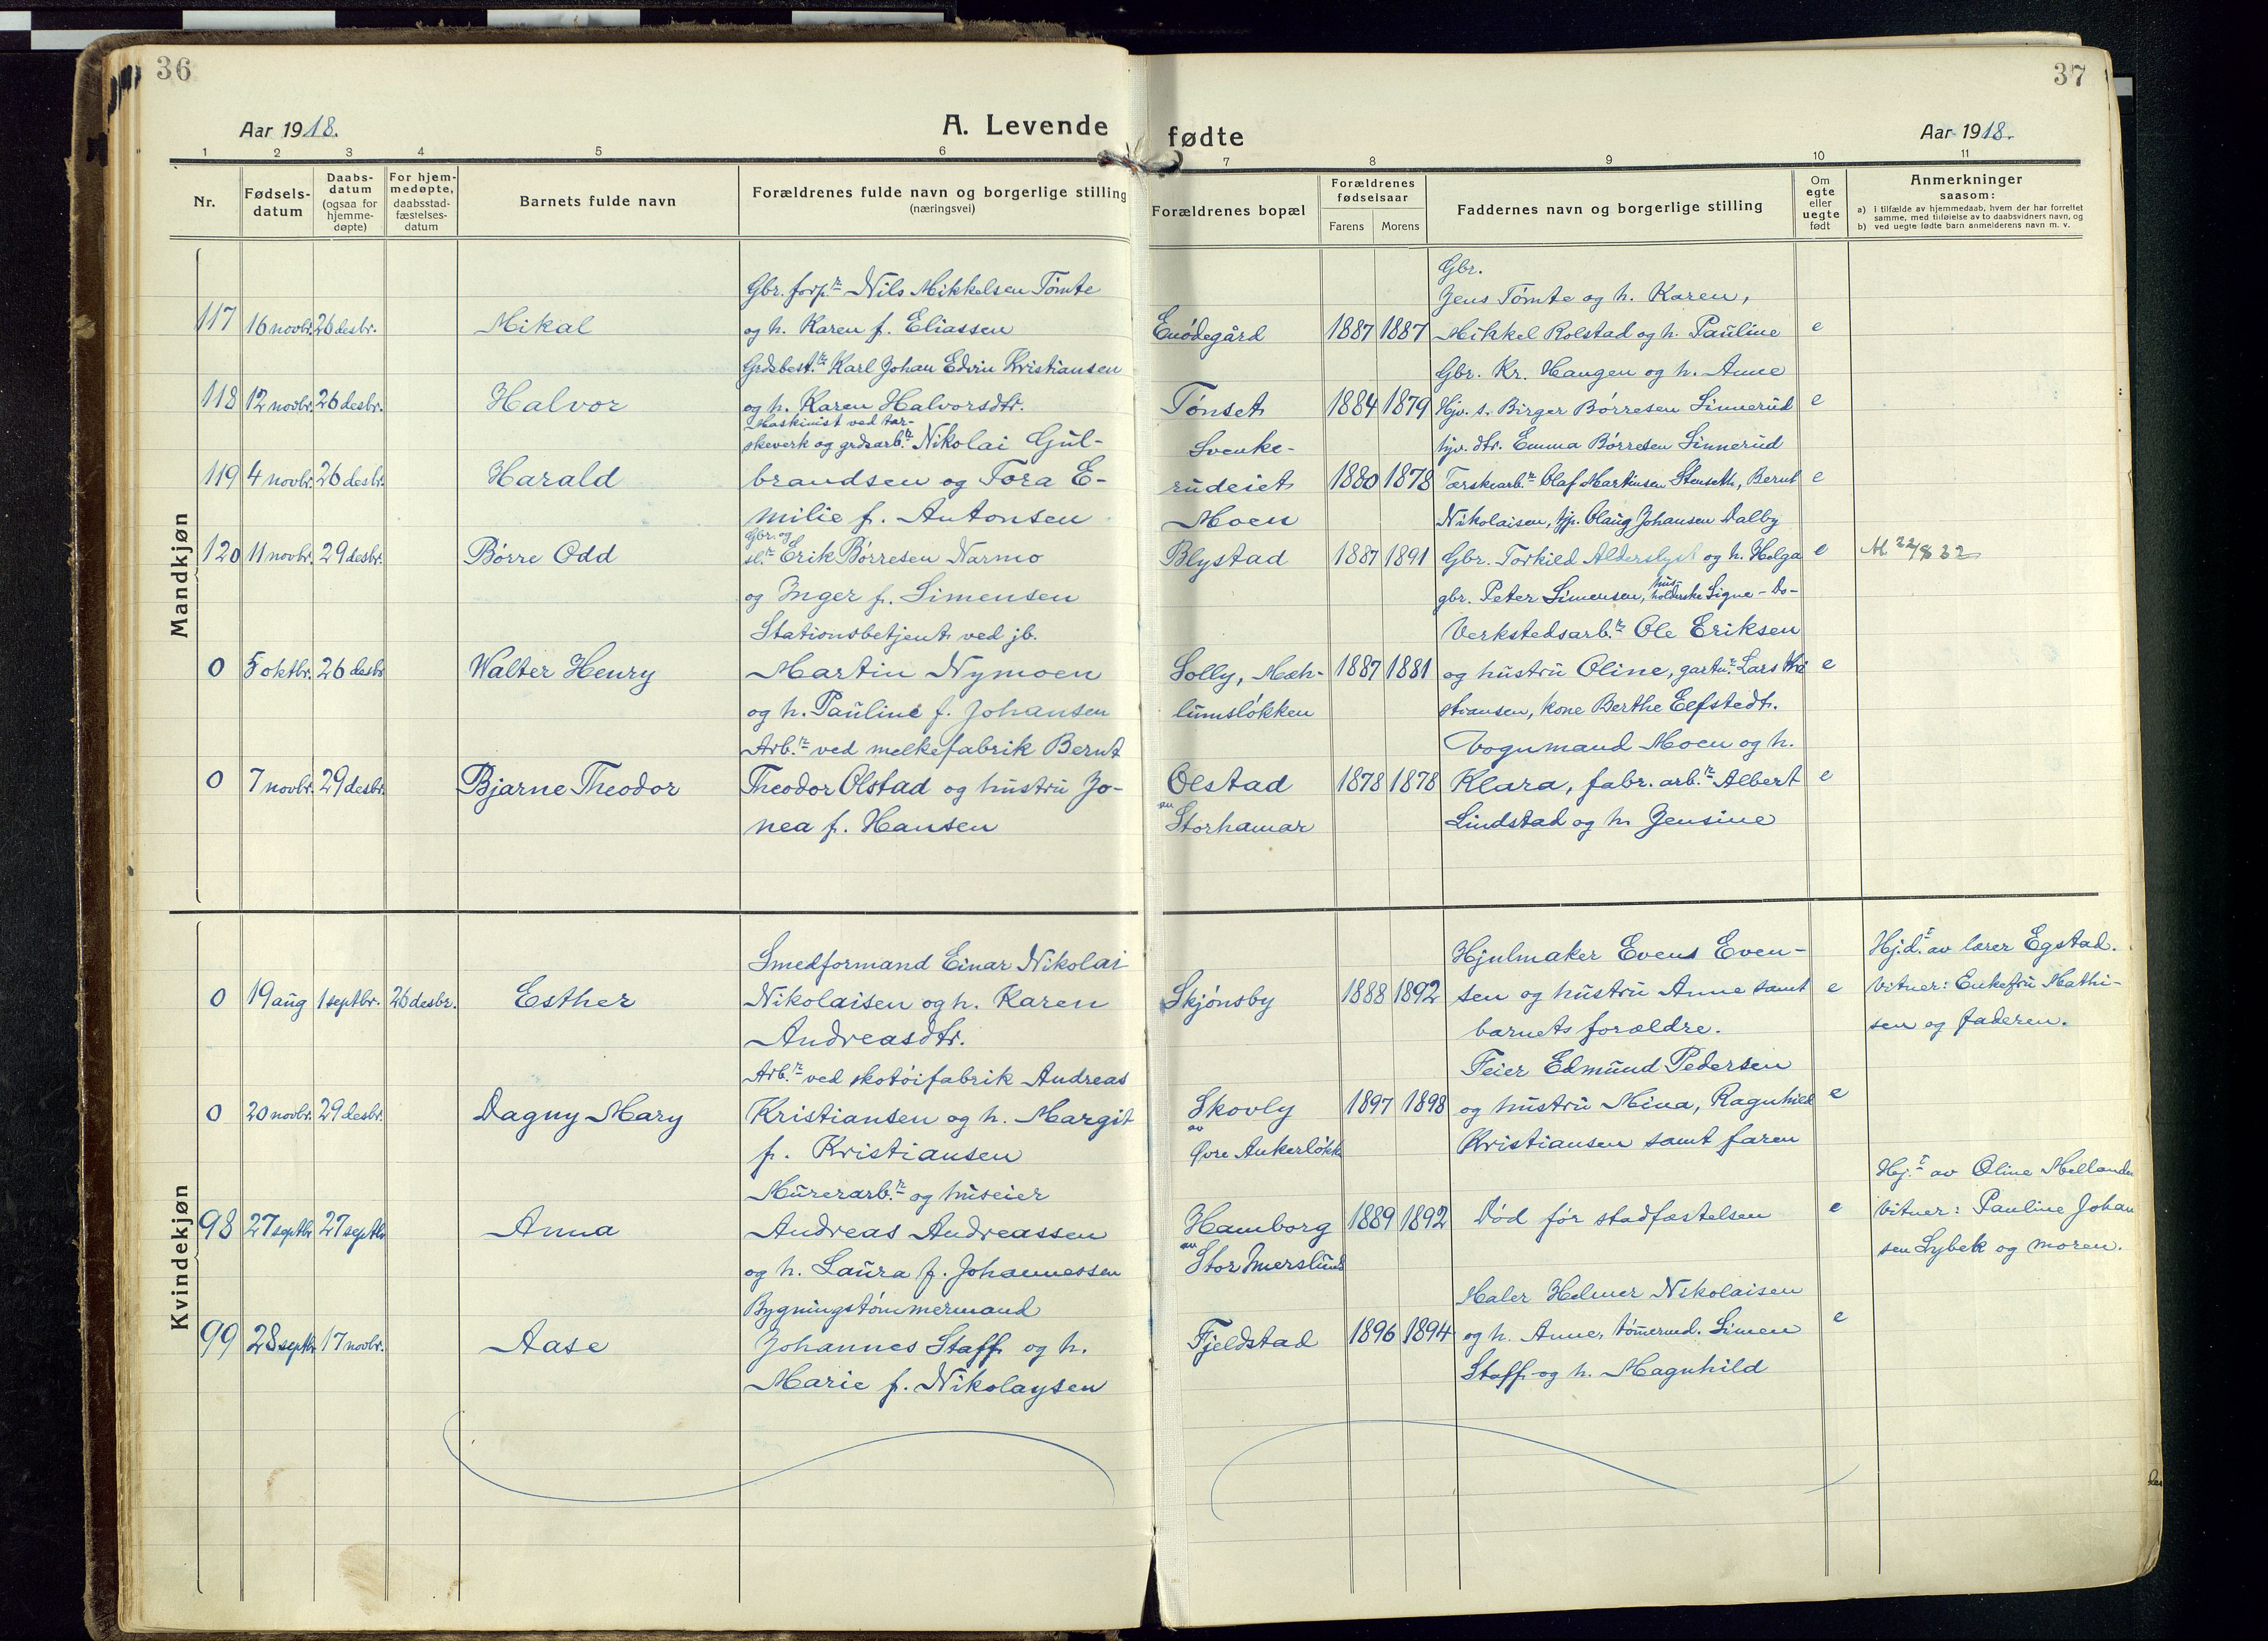 36
37
Aar 1918.
A. Levende fødte
Aar 1918.
1 2 3 4 5 6 7 8 9 10 11
Nr.
Fødsels-
datum
Daabs-
datum
(ogsaa for
hjemme-
døpte)
For hjem-
medøpte,
daabsstad-
fæstelses-
datum
Barnets fulde navn
Forældrenes fulde navn og borgerlige stilling
(næringsvei)
Forældrenes bopæl
Forældrenes
fødselsaar
Farens Morens
Faddernes navn og borgerlige stilling
Om
egte
eller
uegte
født
Anmerkninger
saasom:
a) i tilfælde av hjemmedaab, hvem der har forrettet
samme, med tilføielse av to daabsvidners navn, og
b) ved uegte fødte barn anmelderens navn m. v.
Mandkjøn
117 16 novbr. 26 desbr. Mikal
Gbr. forp.r Nils Mikkelsen Tømte
og h. Karen f. Eliassen
Enødegård 1887 1887
Gbr.
Jens Tømte og h. Karen,
Mikkel Rolstad og h. Pauline
e
118 12 novbr. 26 desbr. Halvor
Grdbest.r Karl Johan Edvin Kristiansen
og h. Karen Halvorsdtr.
Tønset 1884 1879
Gbr. Kr. Haugen og h. Anne
Hjv. s. Birger Børresen Sinnerud
hjv. dtr. Emma Børresen Sinnerud
e
119 4 novbr. 26 desbr. Harald
Maskinist ved tær-
skeverk og grdsarb.r Nikolai Gul-
brandsen og Tora E-
milie f. Antonsen
Svenke-
rudeiet
Moen
1880 1878
Tærskearb.r Olaf Martinsen Stenseth, Bernt
Nikolaisen, tjp. Olaug Johansen Dalby
e
120 11 novbr. 29 desbr. Børre Odd
Gbr. og
sl.r Erik Børresen Narmo
og Inger f. Simensen
Blystad 1887 1891
Gbr. Torkild Alderslyst og h. Helga
gbr. Peter Simensen, husholderske Signe - Do -
e
M 22/8 32
0 5 oktbr. 26 desbr Walter Henry
Stationsbetjent ved jb.
Martin Nymoen
og h. Pauline f. Johansen
Solly, Mæh-
lumsløkken
1887 1881
Verkstedsarb.r Ole Eriksen
og hustru Oline, gartn.r Lars Kri
stiansen, kone Berthe Elfstedt.
e
0 7 novbr. 29 desbr. Bjarne Theodor
Arb.r ved melkefabrik Bernt
Theodor Olstad og hustru Jo-
nea f. Hansen
Olstad
av
Storhamar
1878 1878
Vognmand Moen og h.
Klara, fabr. arb.r Albert
Lindstad og h. Jensine
e
Kvindekjøn
0 19 aug 1 septbr. 26 desbr. Esther
Smedformand Einar Nikolai
Nikolaisen og h. Karen
Andreasdtr.
Skjønsby 1888 1892
Hjulmaker Evens Even-
sen og hustru Anne samt
barnets forældre.
e
Hj.d.t av lærer Egstad.
Vitner: Enkefru Mathi-
sen og faderen.
0 20 novbr. 29 desbr. Dagny Mary
Arb.r ved skotøifabrik Andreas
Kristiansen og h. Margit
f. Kristiansen
Skovly
av
Øvre Ankerløkk
1897 1898
Feier Edmund Pedersen
og hustru Mina, Ragnhild
Kristiansen samt faren
e
98 27 septbr 27 septbr Anna
Murerarb.r og huseier
Andreas Andreassen
og h. Laura f. Johannessen
Hamborg
av
Stor Imerslund
1889 1892
Død før stadfæstelsen
e
Hj.t av Oline Mellander
Vitner: Pauline Johan
sen Lybek og moren.
99 28 septbr 17 novbr. Aase
Bygningstømmermand
Johannes Staff og h.
Marie f. Nikolaysen
Fjeldstad 1896 1894
Maler Helmer Nikolaisen
og h. Anne, tømermd. Simen
Staff og h. Magnhild
e